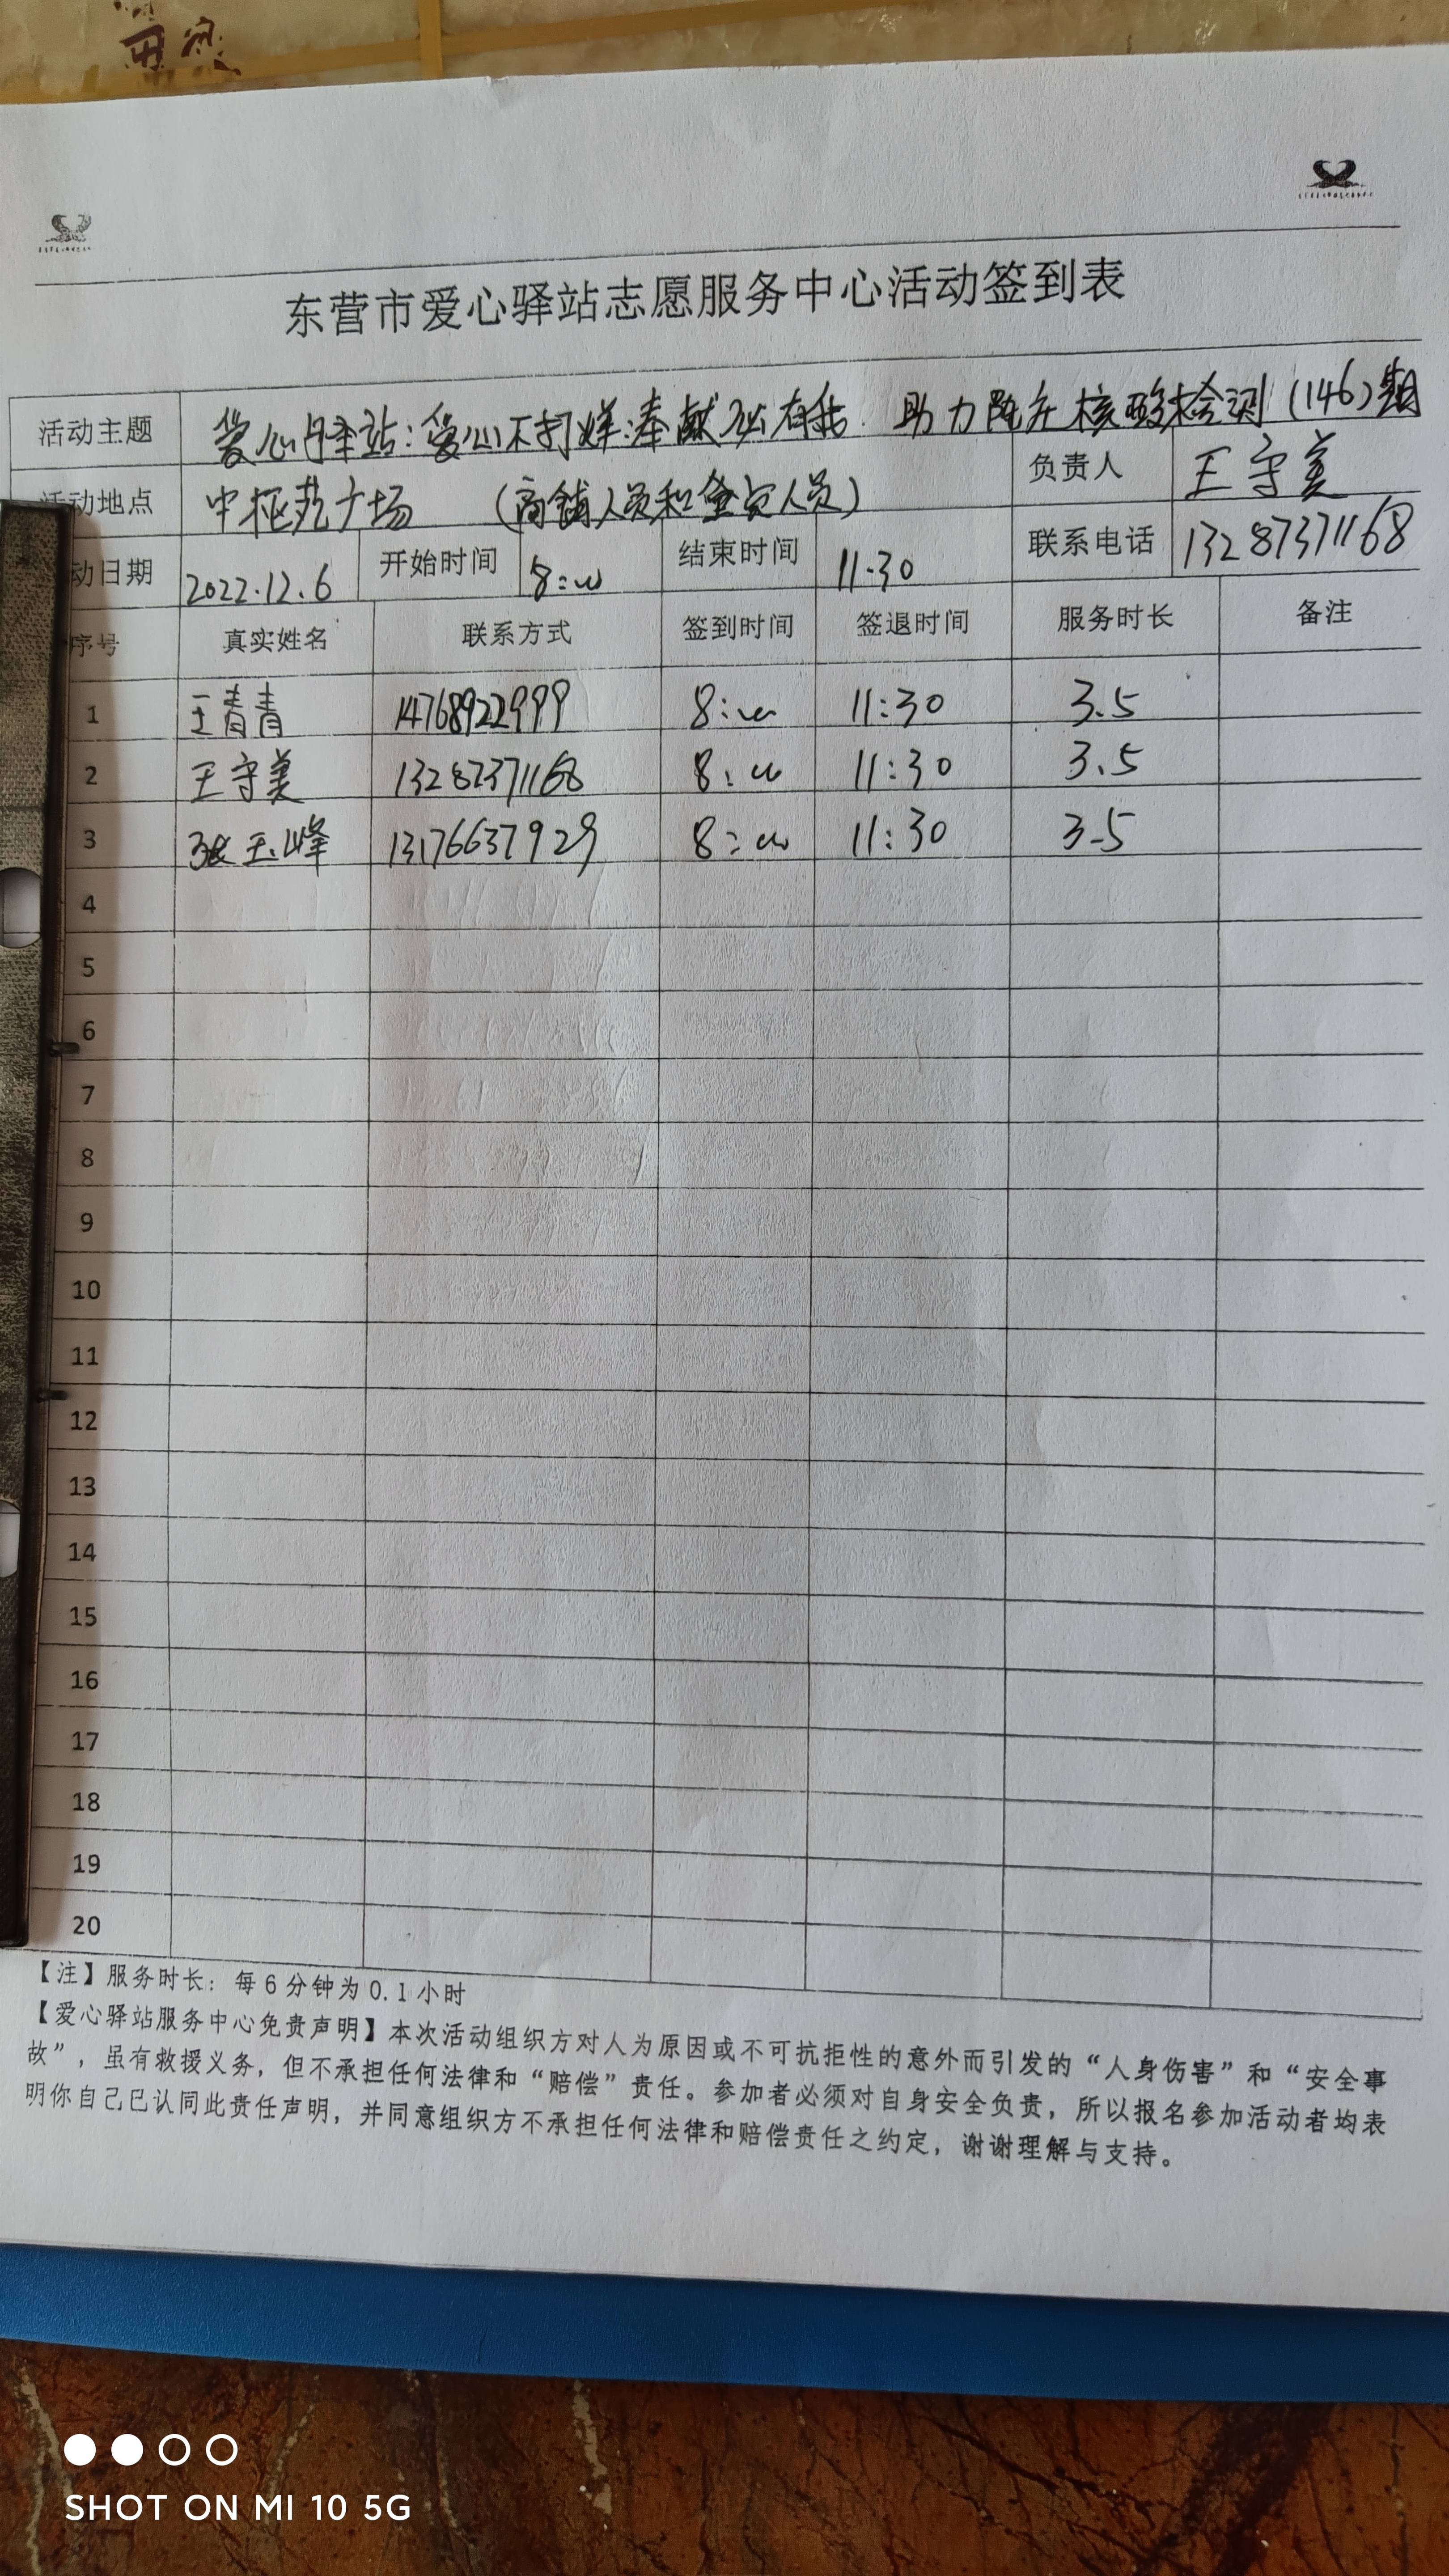 东营市爱心驿站志愿服务中心活动签到表
活动主题 爱心驿站:爱心不打烊:奉献必有我. 助力 核酸检测(146)期
活动地点 中 广场 (商铺人员和 人员) 负责人 王守美
动日期 2022.12.6 开始时间 8:00 结束时间 11.30 联系电话 13287371168
序号 真实姓名 联系方式 签到时间 签退时间 服务时长 备注
1 王青青 14768922999 8:00 11:30 3.5
2 王守美 13287371168 8:00 11:30 3.5
3 张玉峰 13176637929 8:00 11:30 3.5
4
5
6
7
8
9
10
11
12
13
14
15
16
17
18
19
20
【注】服务时长：每6分钟为0.1小时
【爱心驿站服务中心免责声明】本次活动组织方对人为原因或不可抗拒性的意外而引发的“人身伤害”和“安全事
故”，虽有救援义务，但不承担任何法律和“赔偿”责任。参加者必须对自身安全负责，所以报名参加活动者均表
明你自己已认同此责任声明，并同意组织方不承担任何法律和赔偿责任之约定，谢谢理解与支持。
SHOT ON MI 10 5G